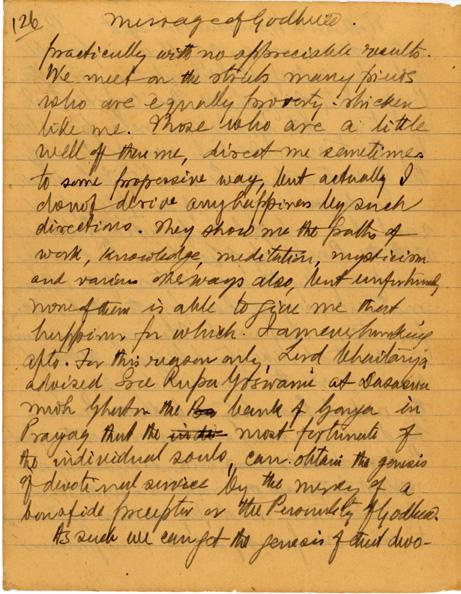 126 Message of Godhead.
practically with no appreciable results.
We meet on the streets many friends
who are equally poverty-stricken
like me. Those who are a little
well off than me, direct me sometimes
to some progressive way, but actually I
do not derive any happiness by such
directions. They show me the paths of
work, knowledge, meditation, mysticism
and various other ways also, but unfortunately
none of them is able to give me that
happiness for which I am ever hankering
after. For this reason only, Lord Chaitanya
advised Sree Rupa Goswami at Dasaswa
medh Ghat on the bank of Ganga in
Prayag that the most fortunate of
the individual souls, can obtain the genesis
of devotional service by the mercy of a
bonafide preceptor or the Personality of Godhead.
As such we can get the genesis of that devo-